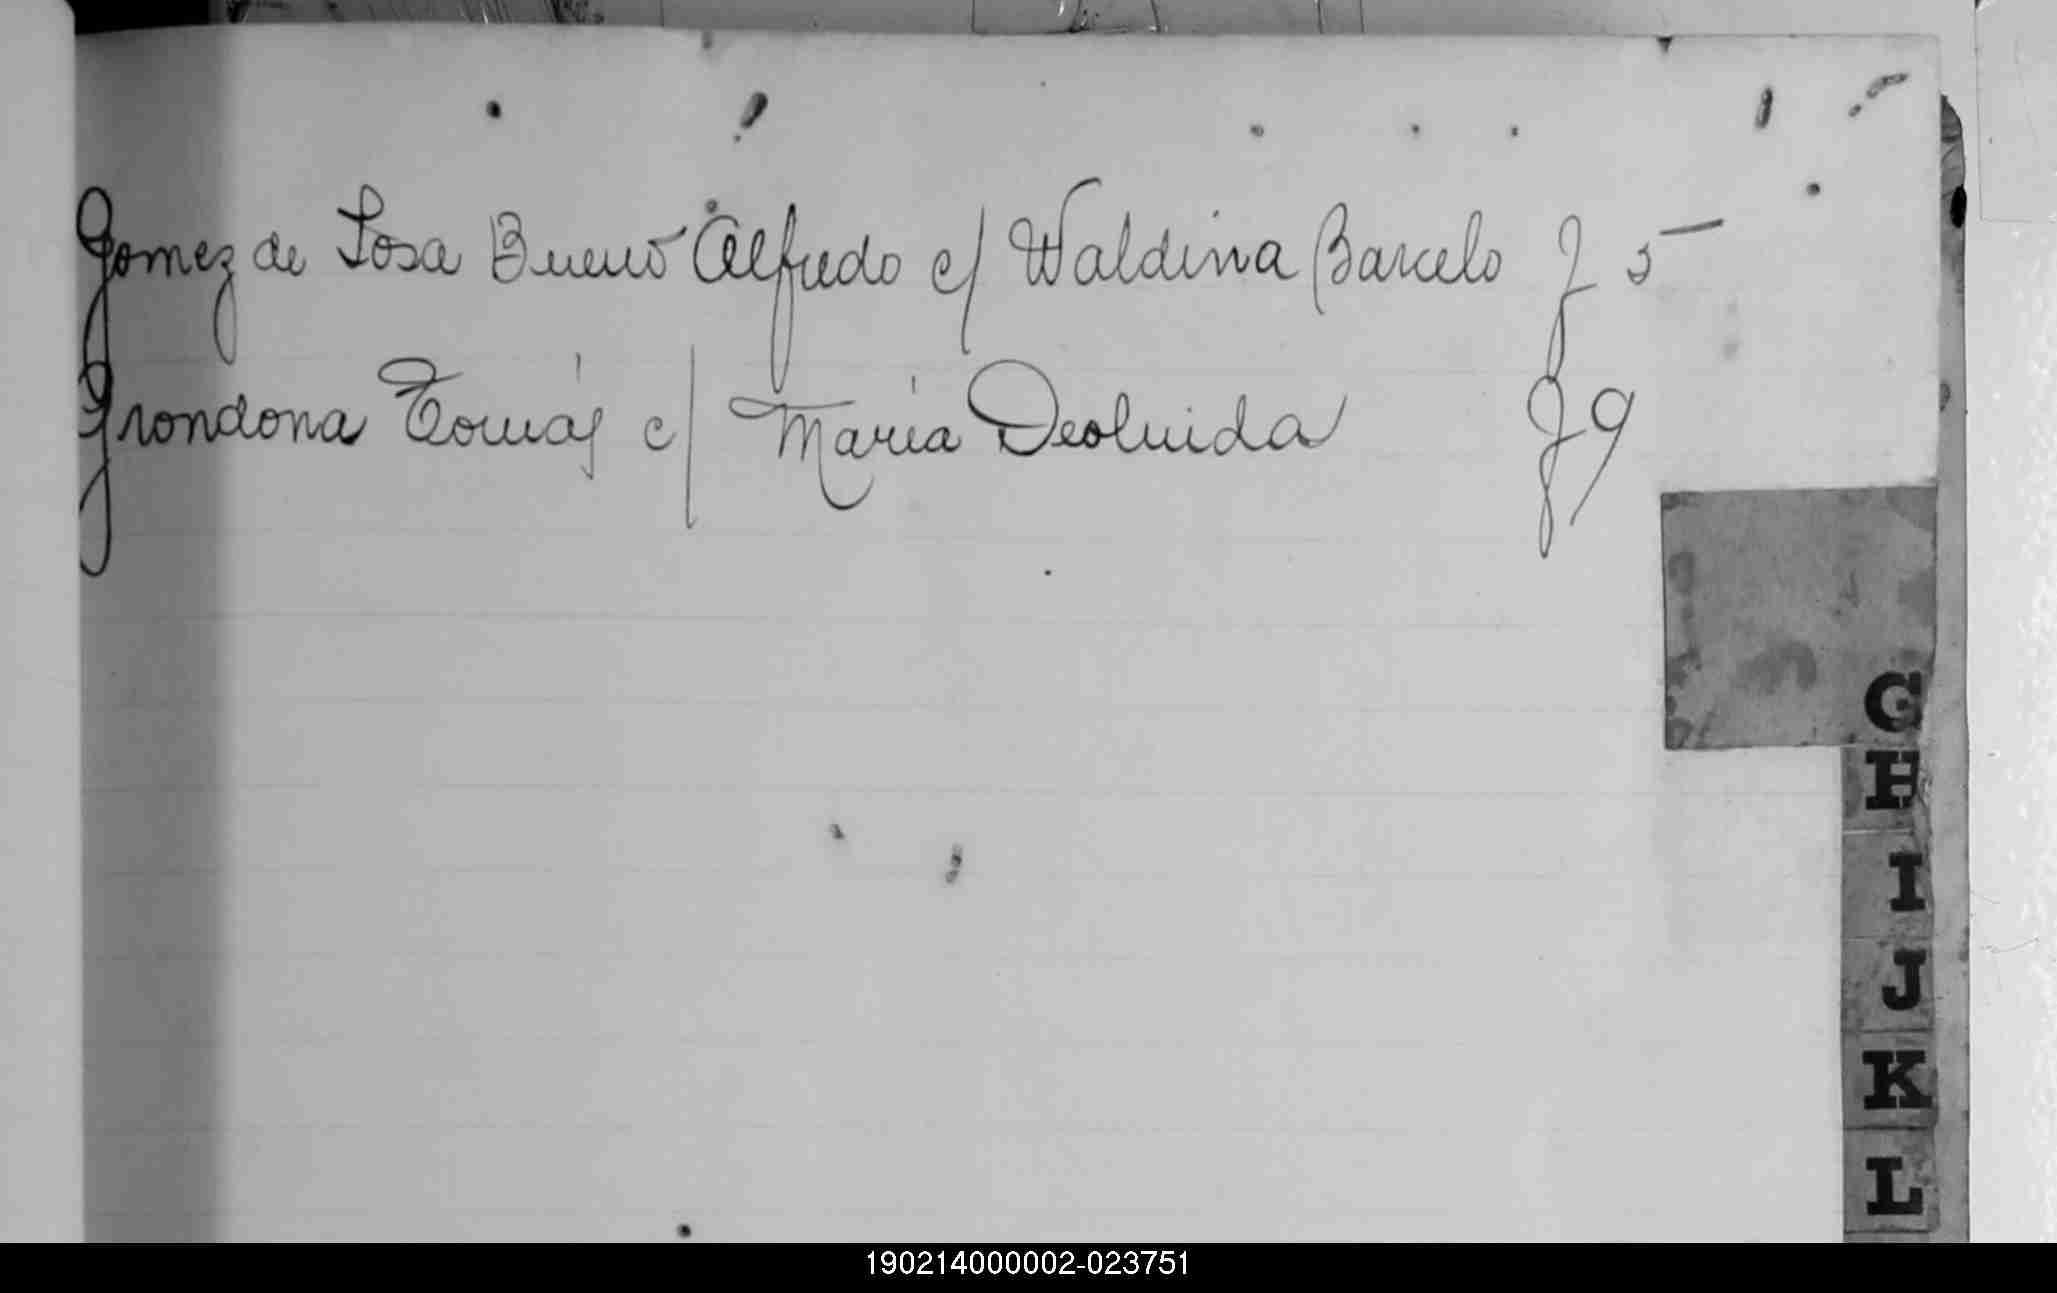 Gomez de Sosa Bueno Alfredo c/ Waldina Barcelo f 5
Grondona Tomás c/ María Deoluida f 9
G
H
I
J
K
L
190214000002-023751